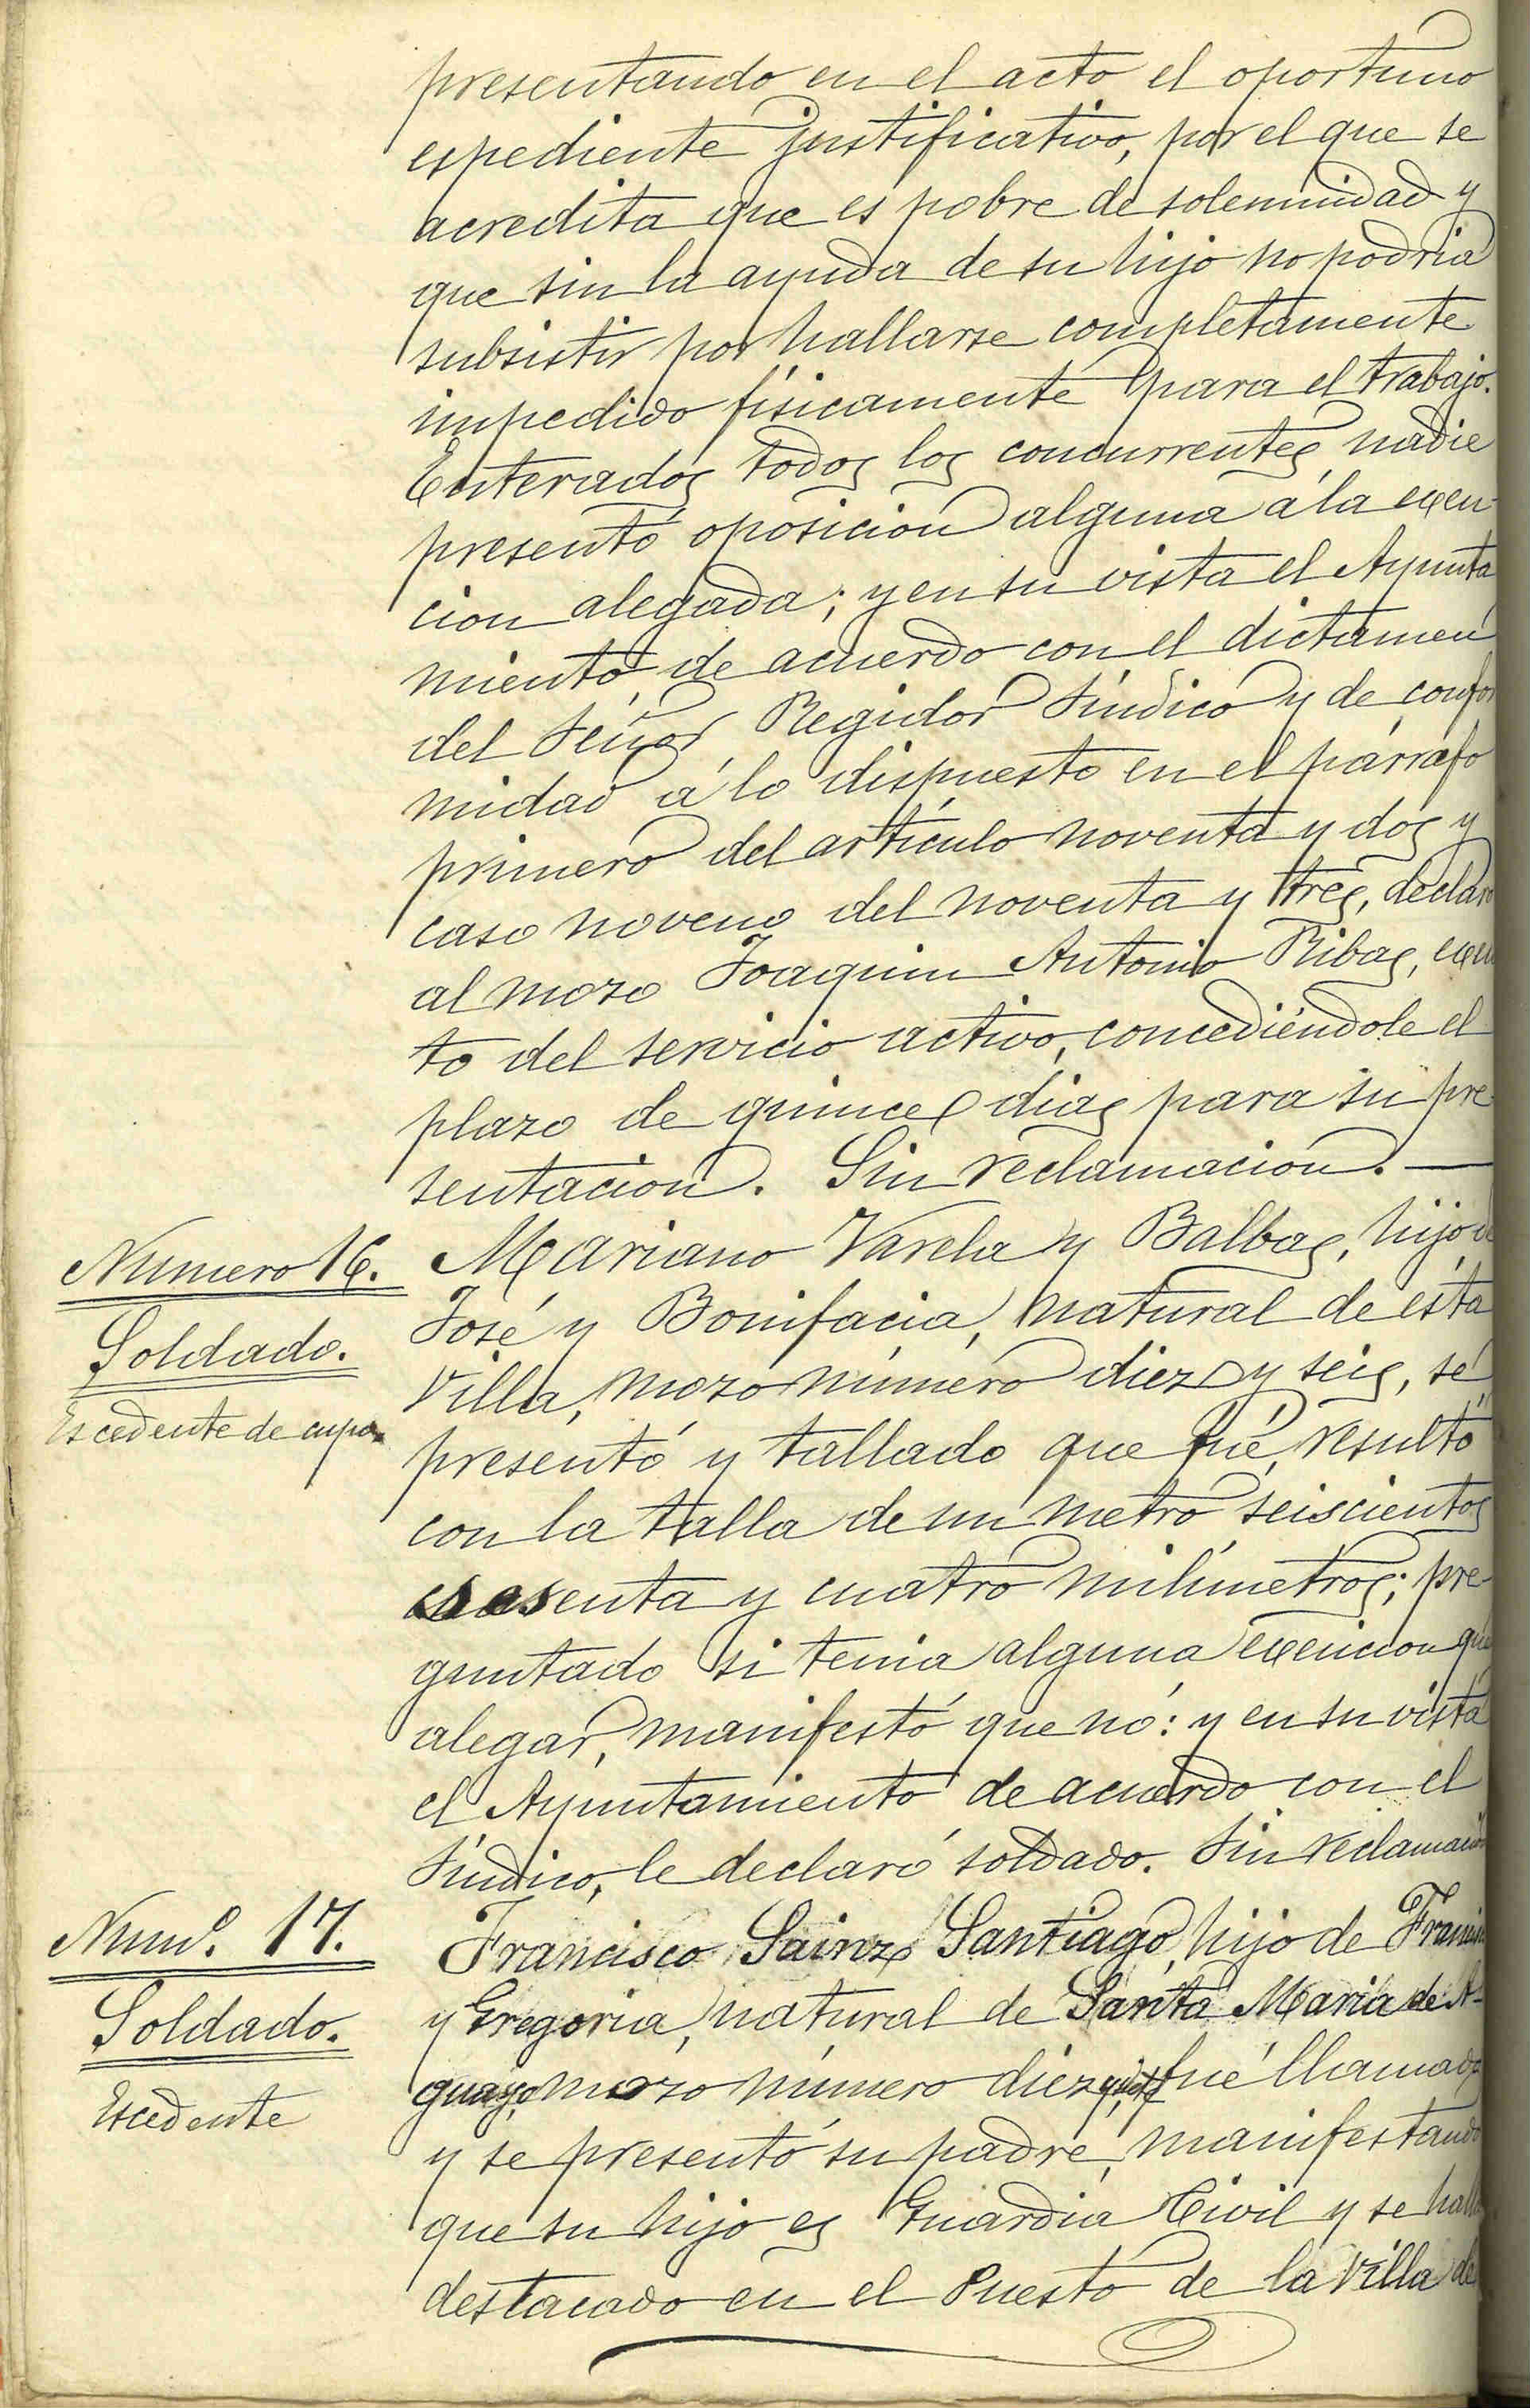 presentando en el acto el oportuno
espediente justificativo, por el que se
acredita que es pobre de solemnidad y
que sin la ayuda de su hijo no podria
subsistir por hallarse completamente
impedido físicamente para el trabajo.
Enterados todos los concurrentes, nadie
presentó oposicion alguna á la exen-
cion alegada; y en su vista el Ayunta
miento, de acuerdo con el dictámen
del Señor Regidor Síndico y de confor
midad á lo dispuesto en el párrafo
primero del artículo noventa y dos y
caso noveno del noventa y tres, declaró
al mozo Joaquin Antonio Ribas, exen
to del servicio activo, concediéndole el
plazo de quince dias para su pre-
sentacion. Sin reclamacion. —
Numero 16.
Soldado.
Escedente de cupo.
Mariano Varela y Balbas, hijo de
José y Bonifacia, natural de esta
Villa, mozo número diez y seis, se
presentó y tallado que fué, resultó
con la talla de un metro seiscientos
sesenta y cuatro milímetros; pre-
guntado si tenia alguna exencion que
alegar, manifestó que nó: y en su vista
el Ayuntamiento de acuerdo con el
Síndico, le declaró soldado. Sin reclamacion
Numº. 17.
Soldado.
Escedente
Francisco Sainz Santiago, hijo de Francisco
y Gregoria, natural de Santa Maria de A-
guayo, mozo número diez y siete, fué llamado
y se presentó su padre, manifestando
que su hijo es Guardia Civil y se halla
destacado en el Puesto de la Villa de